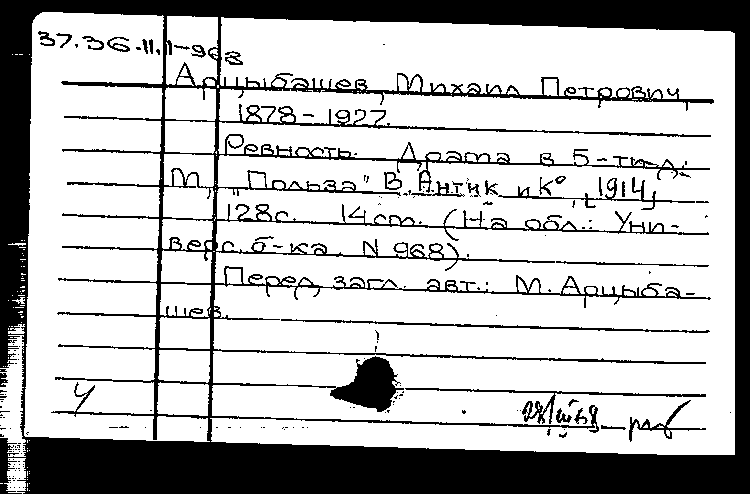 37.36.II.1-968
Арцыбашев, Михаил Петрович,
1878-1927.
Ревность. Драма в 5-ти д.:
М, "Польза" В. Антик и К°, [1914]
128 с. 14 см. (На обл.: Уни-
верс. б-ка. N 968).
Перед загл. авт.: М. Арцыба-
шев.
У